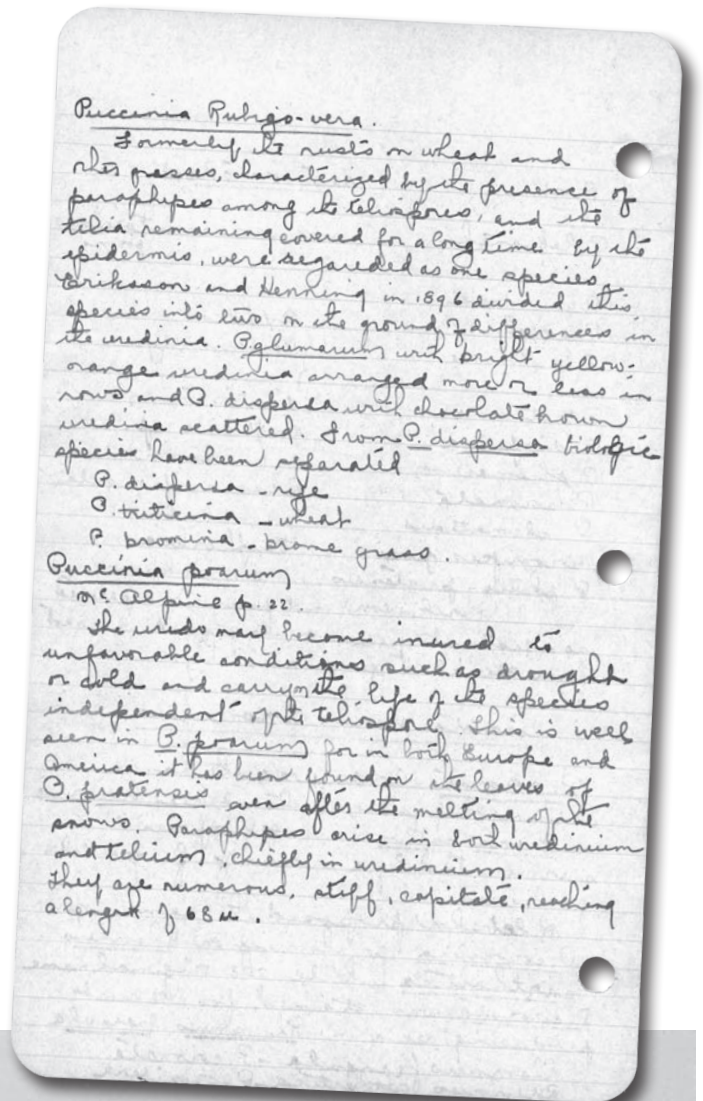 Puccinia Rubigo-vera.
Formerly the rusts on wheat and
other grasses, characterized by the presence of
paraphyses among the teliospores, and the
telia remaining covered for a long time by the
epidermis, were regarded as one species.
Erikason and Henning in 1896 divided this
species into two on the ground of differences in
the uredinia. P. glumarum with bright yellow-
orange uredinia arranged more or less in
rows and P. dispersa with chocolate brown
uredinia scattered. From P. dispersa biologic
species have been separated
P. dispersa - rye
P. triticina - wheat
P. bromina - brome grass.
Puccinia poarum
McAlpine p. 22.
The uredo may become inured to
unfavorable conditions such as drought
or cold and carry on the life of the species
independent of the teliospore. This is well
seen in P. poarum for in both Europe and
America it has been found on the leaves of
P. pratensis even after the melting of the
snows. Paraphyses arise in both uredinium
and telium, chiefly in uredinium.
They are numerous, stiff, capitate, reaching
a length of 68 u.